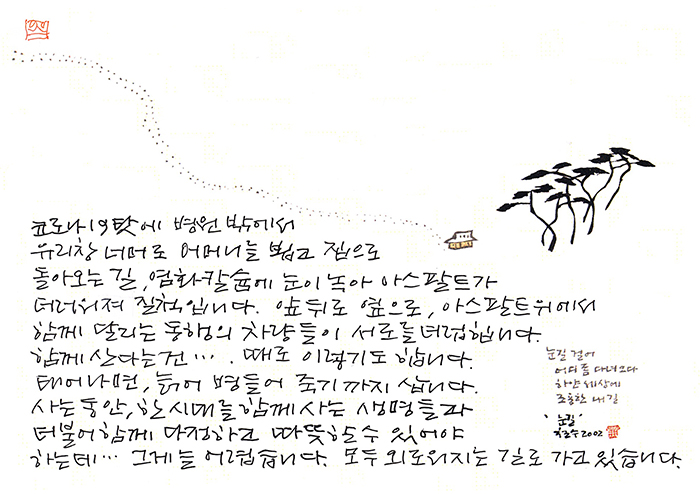 코로나19 탓에 병원 밖에서
유리창 너머로 어머니를 뵙고 집으로
돌아오는 길, 염화칼슘에 눈이 녹아 아스팔트가
더러워져 질척입니다. 앞뒤로 옆으로, 아스팔트위에서
함께 달리는 동행의 차량들이 서로를 더럽힙니다.
함께 산다는건…. 때로 이렇기도 합니다.
태어나면, 늙어 병들어 죽기까지 삽니다.
사는동안, 한시대를 함께 사는 생명들과
더불어 함께 다정하고 따뜻할수 있어야
하는데… 그게 늘 어렵습니다. 모두 외로워지는 길로 가고 있습니다.
눈길 걸어
어디쯤 다녀오다
하얀 세상에
조용한 내 길
'눈길'
2002